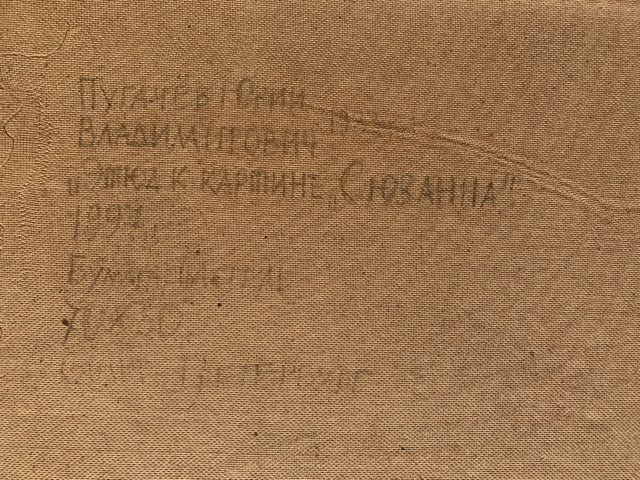 Пугачёв Юрий
Владимирович
"Этюд к картине "Сюзанна"!
1997
Бумага пастель
70х50
Санкт-Петербург